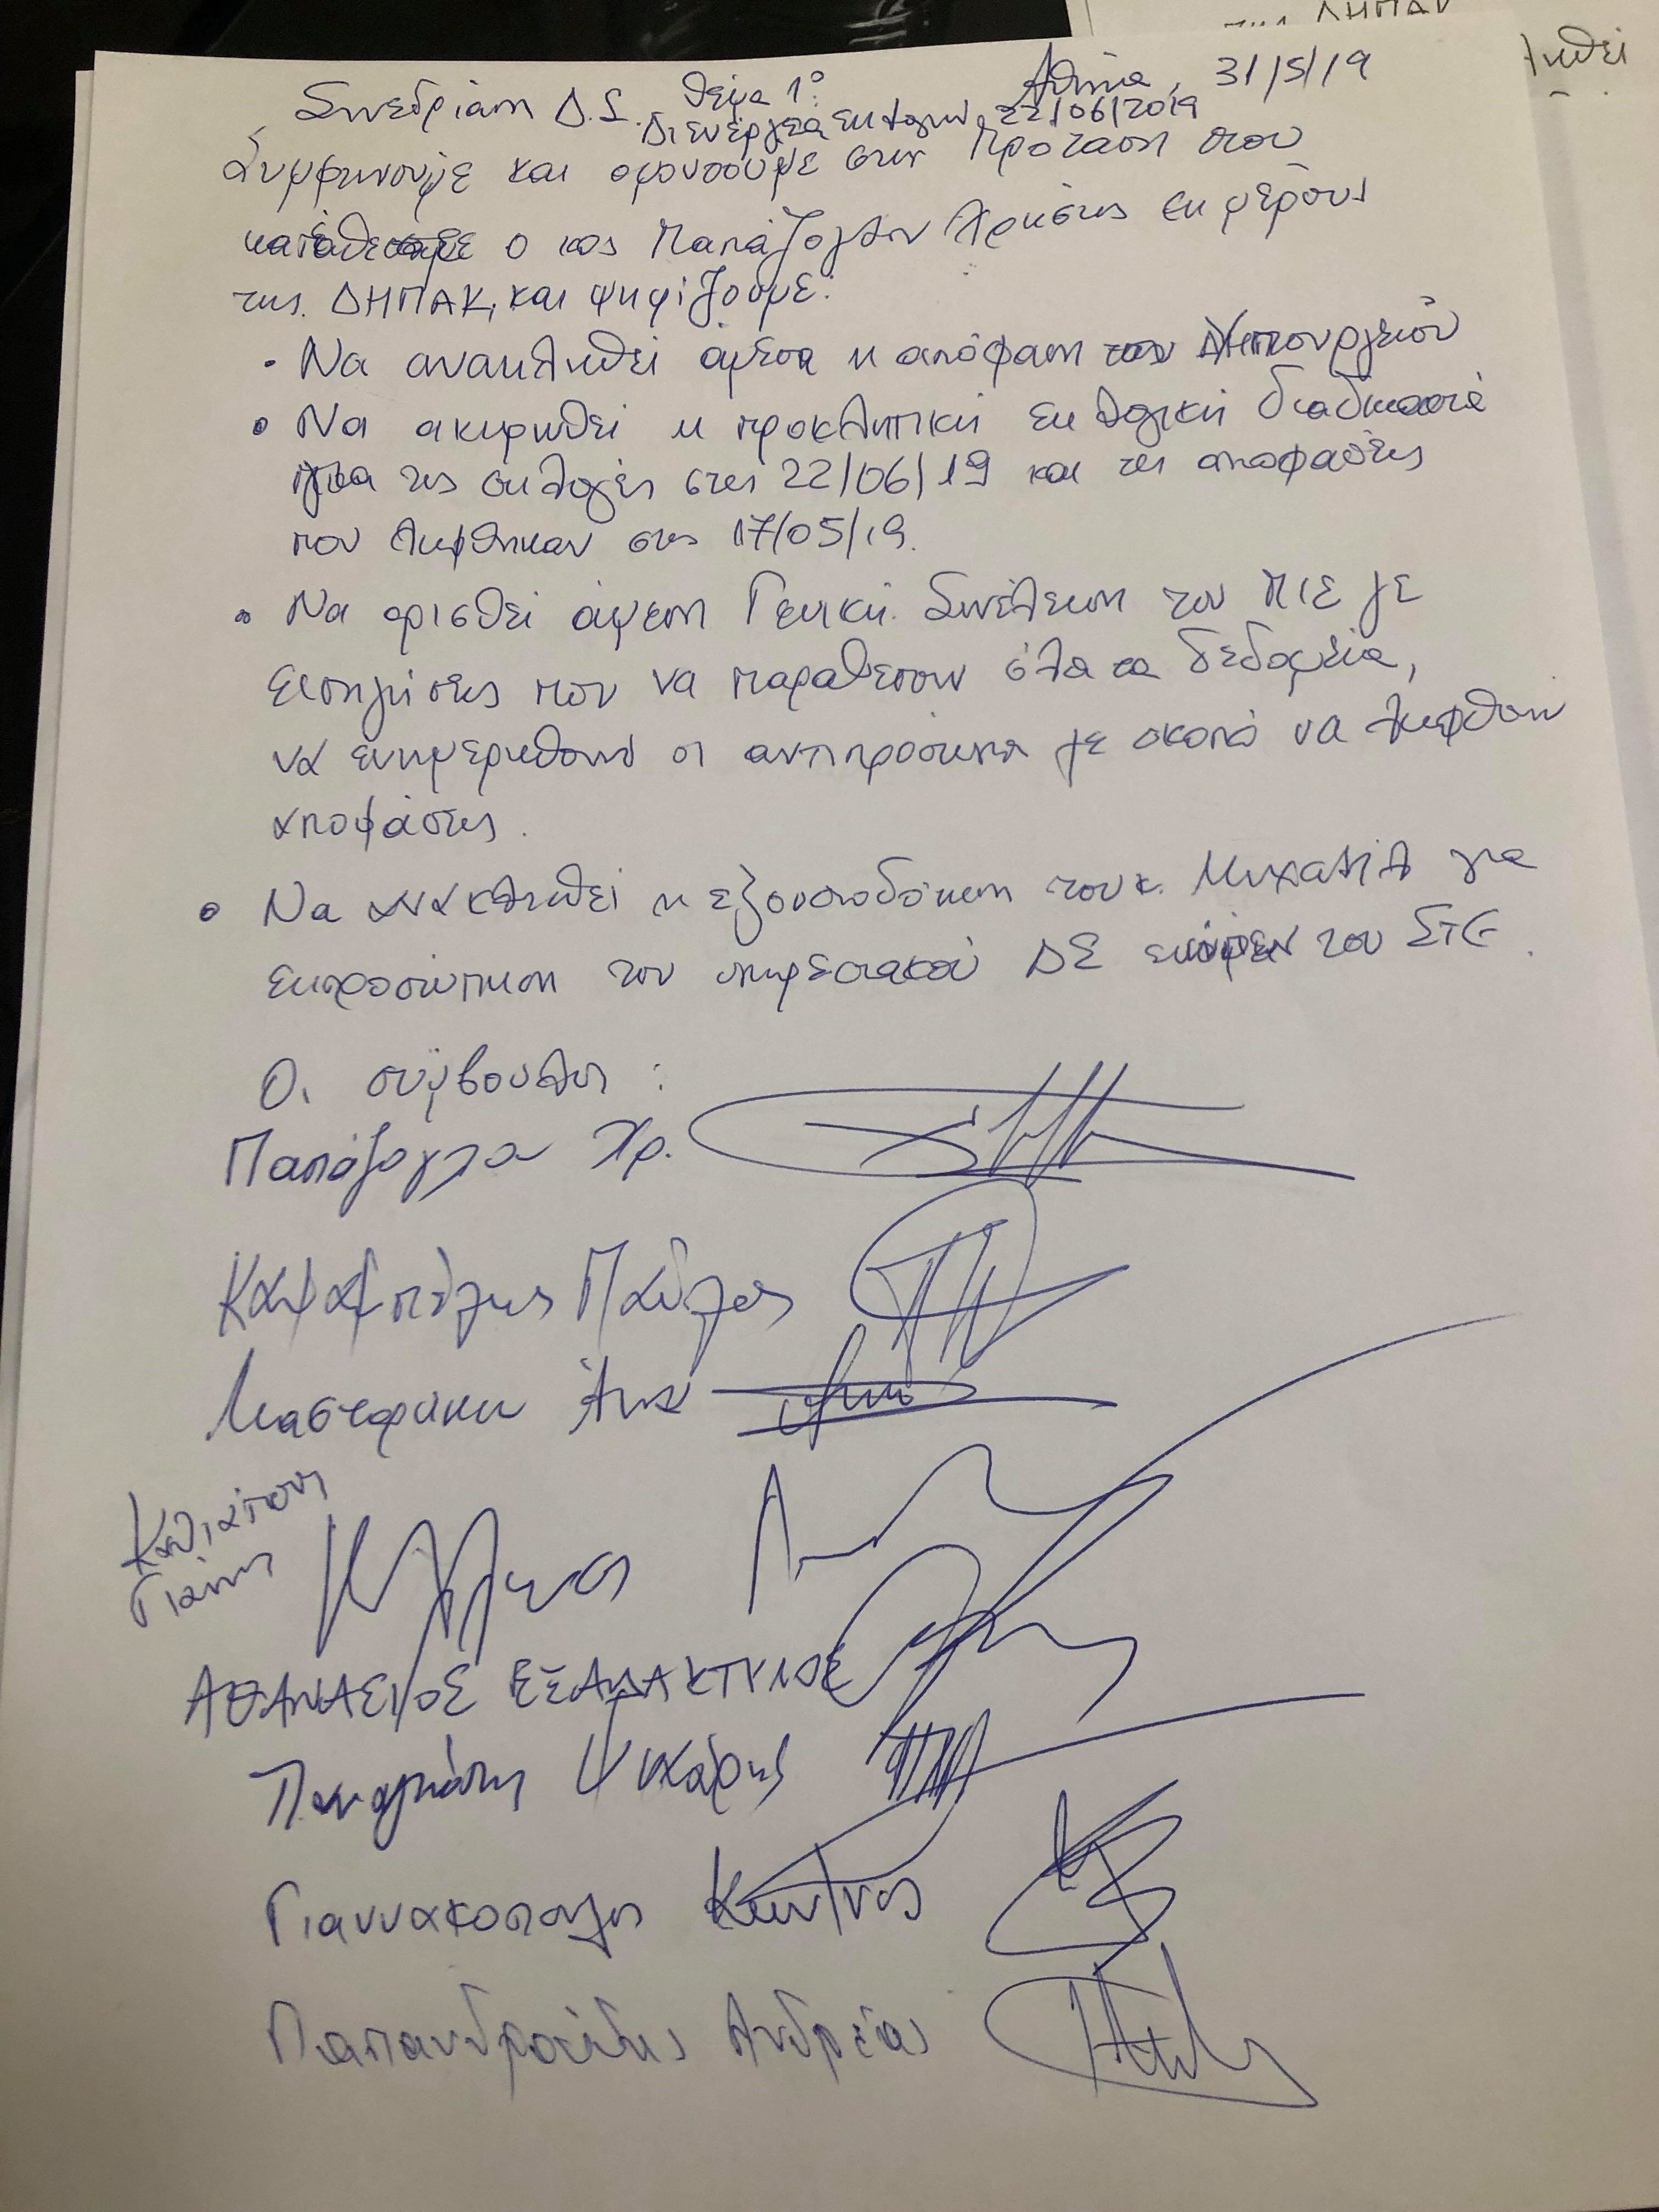 ΔΗΠΑΚ
Αθήνα, 31/5/19
Συνεδρίαση Δ.Σ. Θέμα 1ο:
Διενέργεια εκλογών 22/06/2019
Συμφωνούμε και ομονοούμε στην πρόταση που
κατέθεσε ο κος Παπάζογλου Χρήστος εκ μέρους
της ΔΗΠΑΚ, και ψηφίζουμε:
• Να ανακληθεί άμεσα η απόφαση του Υπουργείου
• Να ακυρωθεί η προκλητική εκλογική διαδικασία
για τις εκλογές στις 22/06/19 και τις αποφάσεις
που λήφθηκαν στις 17/05/19.
• Να ορισθεί άμεση Γενική Συνέλευση του ΠΙΣ με
εισηγήσεις που να παραθέτουν όλα τα δεδομένα,
να ενημερωθούν οι αντιπρόσωποι με σκοπό να ληφθούν
αποφάσεις.
• Να ανακληθεί η εξουσιοδότηση του κ. Μιχαήλ για
εκπροσώπηση του υπηρεσιακού ΔΣ ενώπιον του ΣτΕ.
Οι σύμβουλοι:
Παπάζογλου Χρ.
Παύλος
Μαστοράκου Άννα
Γιάννης
ΑΘΑΝΑΣΙΟΣ ΕΞΑΔΑΚΤΥΛΟΣ
Παναγιώτης Ψυχάρης
Γιαννακόπουλος Κων/νος
Παπανδρούδης Ανδρέας